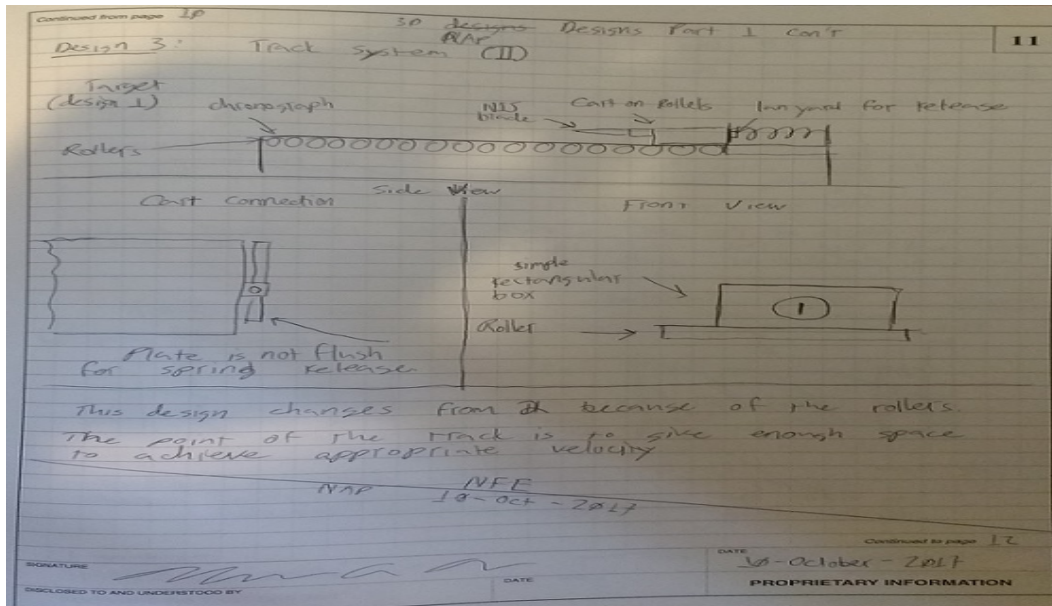 Continued from page 10
3D designs Designs Part 1 con't
NAP
11
Design 3: Track System (II)
Target
(design 1)
chronograph
NIJ
blade
Cart on Rollers
for release
Rollers
Side View
Cart connection
Front View
simple
rectangular
box
Roller
1
Plate is not flush
for spring release
This design changes from because of the rollers.
The point of the track is to give enough space
to achieve appropriate velocity
NAP
NFE
10-Oct-2017
Continued to page 12
SIGNATURE
DATE
10-October-2017
DISCLOSED TO AND UNDERSTOOD BY
DATE
PROPRIETARY INFORMATION